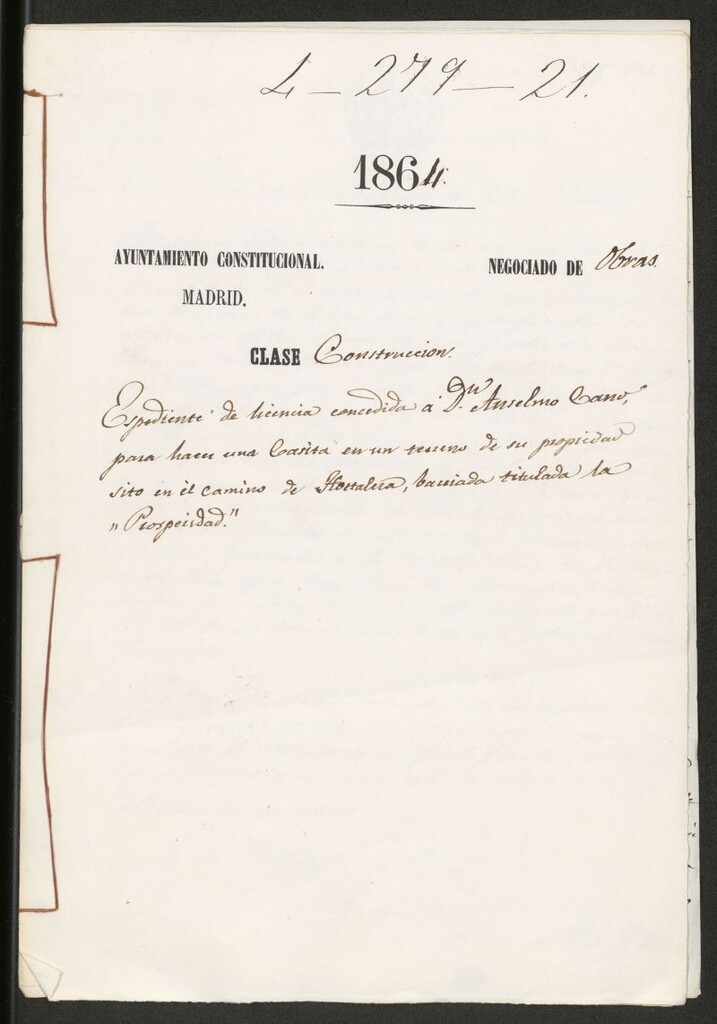 4 - 279 - 21.
1864.
AYUNTAMIENTO CONSTITUCIONAL.
MADRID.
NEGOCIADO DE Obras.
CLASE Construccion.
Espediente de licencia concedida á Dn. Anselmo Cano,
para hacer una Casita en un terreno de su propiedad
sito en el camino de Hortaleza, barriada titulada la
"Prosperidad."